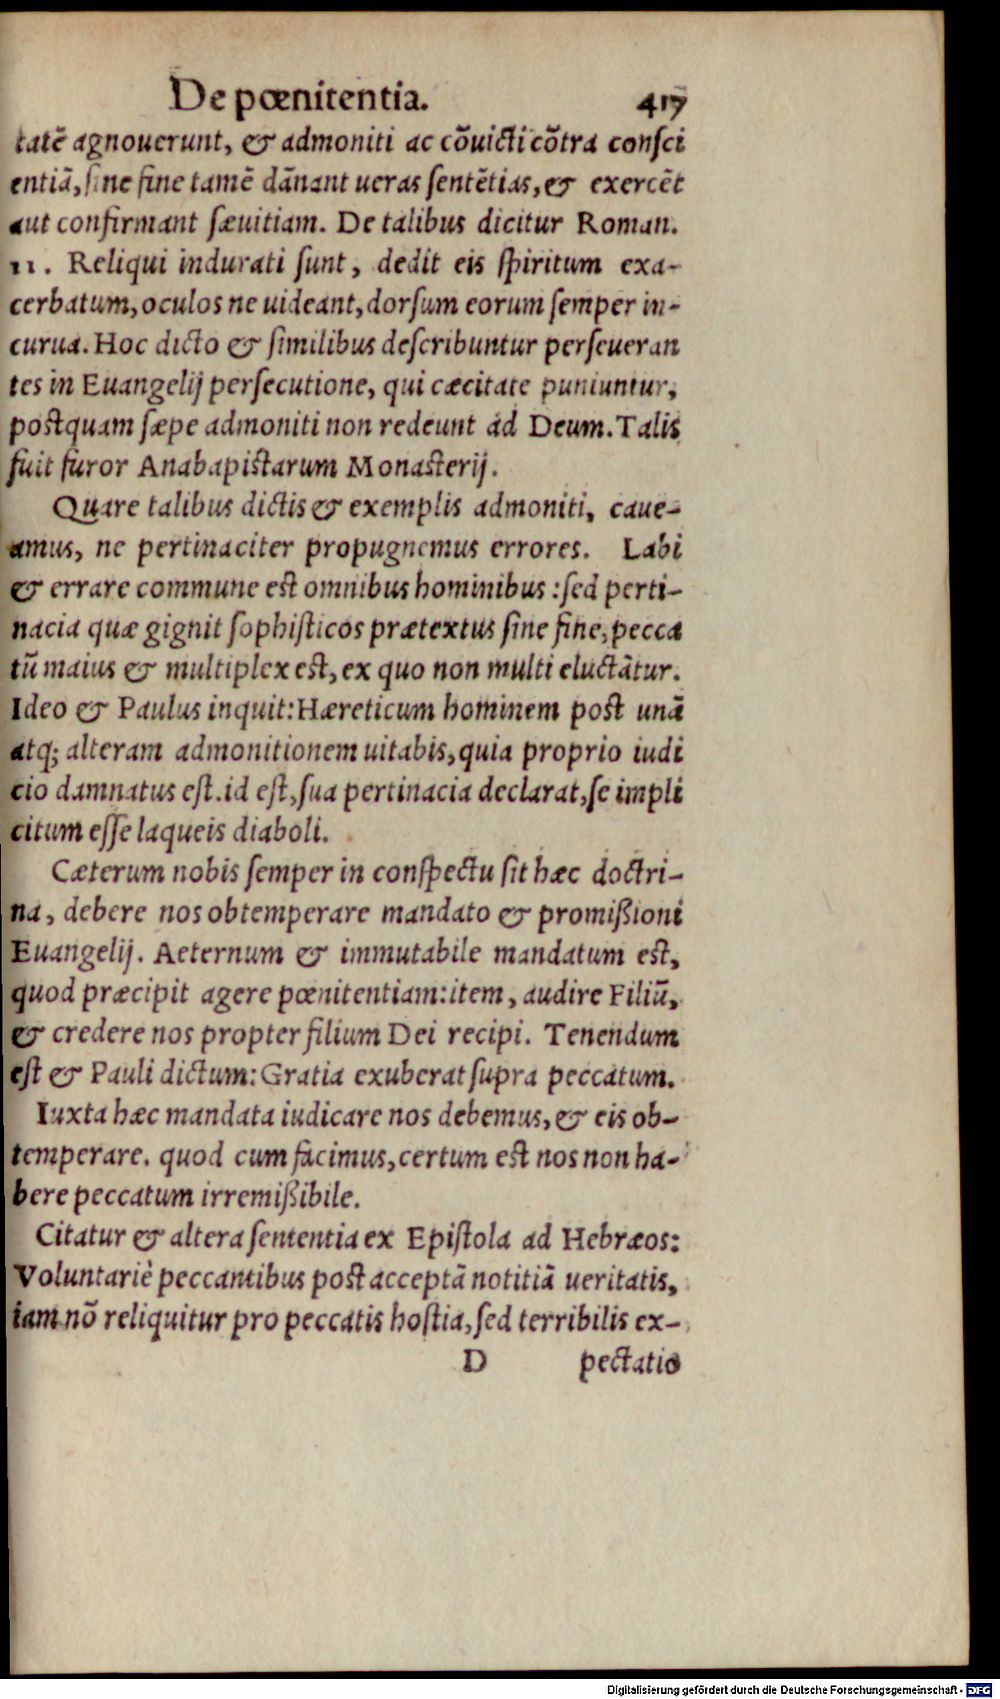 De pœnitentia. 417
tatē agnouerunt, & admoniti ac cōuicti cōtra consci
entiā, sine fine tamē dānant ueras sentētias, & exercēt
aut confirmant sæuitiam. De talibus dicitur Roman.
11. Reliqui indurati sunt, dedit eis spiritum exa-
cerbatum, oculos ne uideant, dorsum eorum semper in-
curua. Hoc dicto & similibus describuntur perseueran
tes in Euangelij persecutione, qui cæcitate puniuntur,
postquam sæpe admoniti non redeunt ad Deum. Talis
fuit furor Anabapistarum Monasterij.
Quare talibus dictis & exemplis admoniti, caue-
amus, ne pertinaciter propugnemus errores. Labi
& errare commune est omnibus hominibus: sed perti-
nacia quæ gignit sophisticos prætextus sine fine, pecca
tū maius & multiplex est, ex quo non multi eluctātur.
Ideo & Paulus inquit: Hæreticum hominem post unā
atq; alteram admonitionem uitabis, quia proprio iudi
cio damnatus est. id est, sua pertinacia declarat, se impli
citum esse laqueis diaboli.
Cæterum nobis semper in conspectu sit hæc doctri-
na, debere nos obtemperare mandato & promißioni
Euangelij. Aeternum & immutabile mandatum est,
quod præcipit agere pœnitentiam: item, audire Filiū,
& credere nos propter filium Dei recipi. Tenendum
est & Pauli dictum: Gratia exuberat supra peccatum.
Iuxta hæc mandata iudicare nos debemus, & eis ob-
temperare. quod cum facimus, certum est nos non ha-
bere peccatum irremißibile.
Citatur & altera sententia ex Epistola ad Hebræos:
Voluntariè peccantibus post acceptā notitiā ueritatis,
iam nō reliquitur pro peccatis hostia, sed terribilis ex-
D pectatio
Digitalisierung gefördert durch die Deutsche Forschungsgemeinschaft - DFG